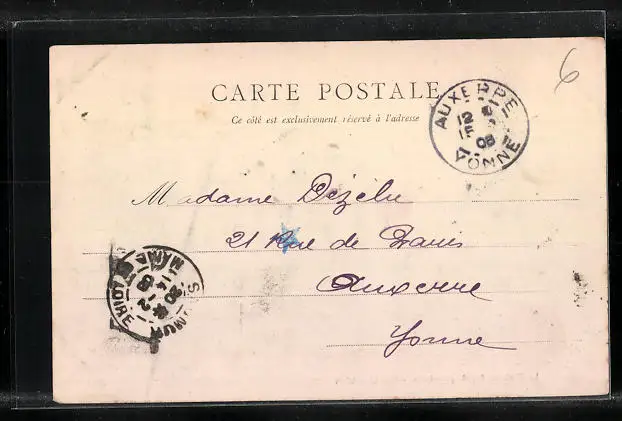 CARTE POSTALE
Ce côté est exclusivement réservé à l'adresse
6
AUXERRE
12
15
03
YONNE
Madame Dézélu
21 Rue de Paris
Auxerre
Yonne
14-2
03
LOIRE